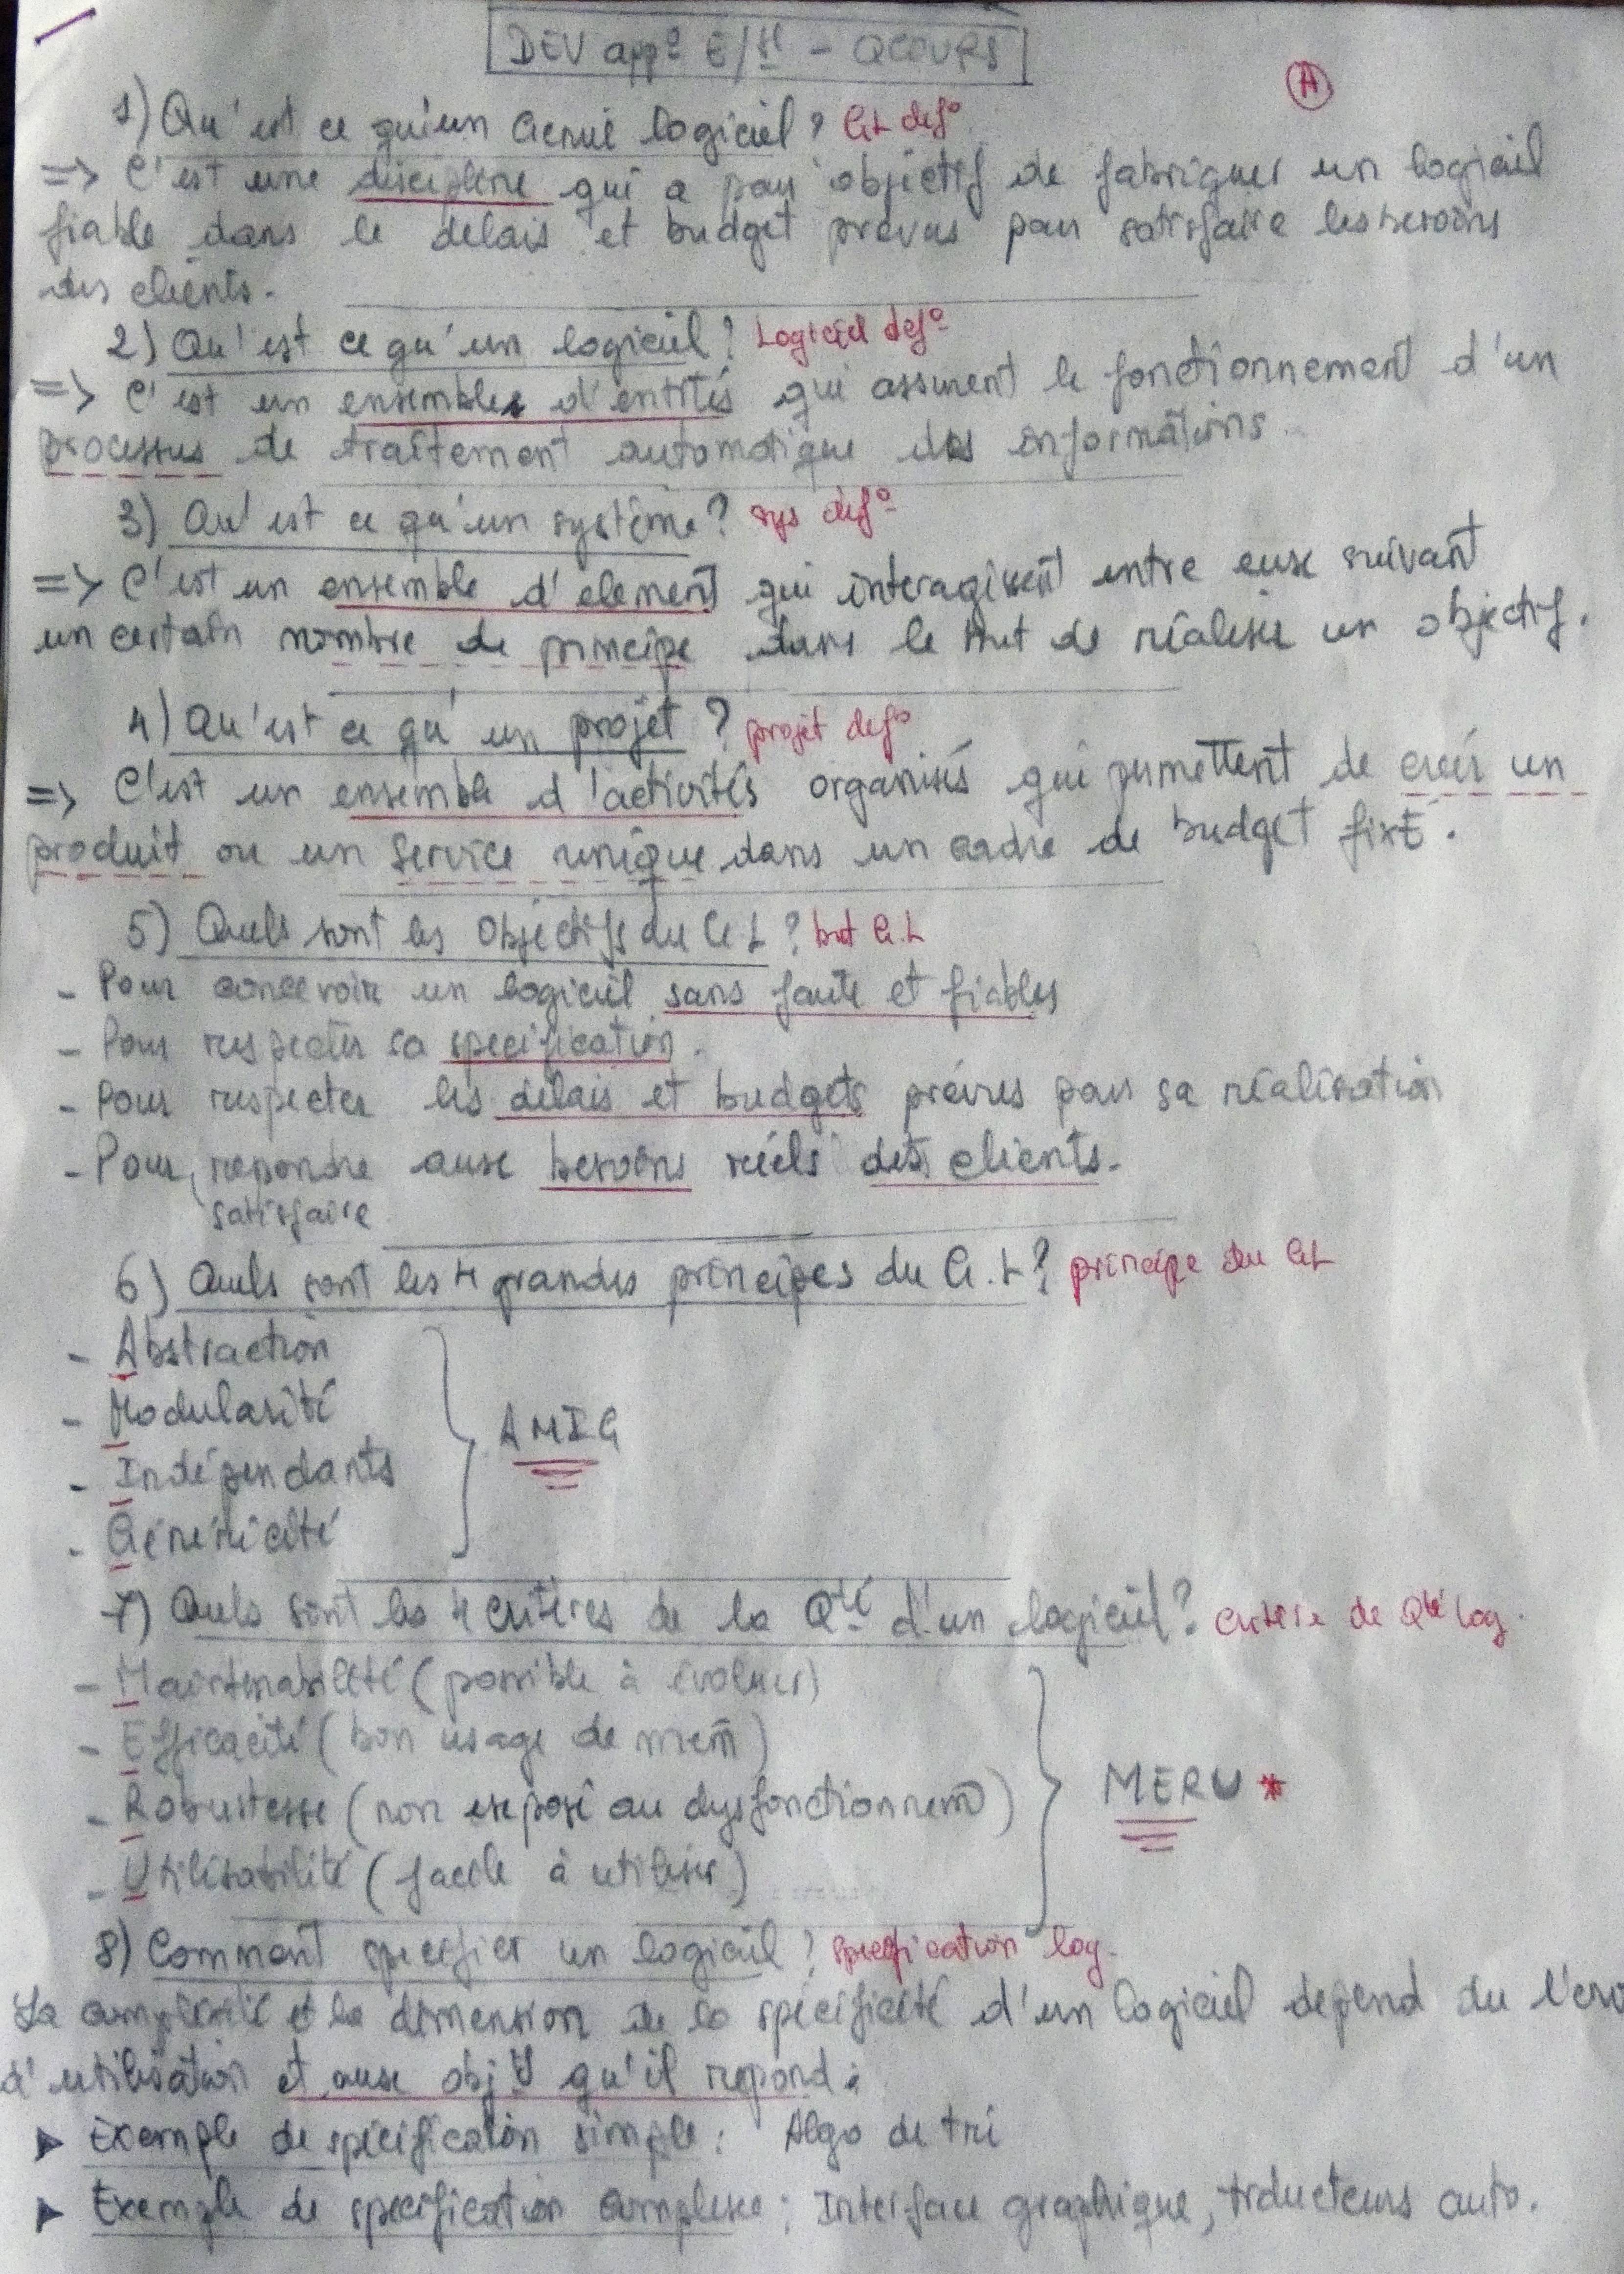 DEV app° E/se - QCOURS
A
1) Qu'est ce qu'un Genie logiciel? GL def°
=> C'est une discipline qui a pour objectif de fabriquer un logiciel
fiable dans le delais et budget prevus pour satisfaire les besoins
des clients.
2) Qu'est ce qu'un logiciel? Logiciel def°
=> C'est un ensemble d'entités qui assurent le fonctionnement d'un
processus de traitement automatique des informations.
3) Qu'est ce qu'un système? sys def°
=> C'est un ensemble d'element qui interagissent entre eux suivant
un certain nombre de principe dans le but de réaliser un objectif.
4) Qu'est ce qu'un projet? projet def°
=> C'est un ensemble d'activités organisés qui permettent de créer un
produit ou un service unique dans un cadre de budget fixé.
5) Quels sont les Objectifs du GL? but G.L
- Pour concevoir un logiciel sans faute et fiables
- Pour respecter sa specification.
- Pour respecter les délais et budgets prévues pour sa réalisation
- Pour repondre aux besoins réels des clients.
satisfaire
6) Quels sont les 4 grandes principes du G.L? principe du GL
- Abstraction
- Modularité
- Indépendants
- Généricité
AMIG
7) Quels sont les 4 critères de la Qté d'un logiciel? critère de Qté log.
- Maintenabilité (possible à évoluer)
- Efficacité (bon usage de mem)
- Robustesse (non exposé au dysfonctionnem)
- Utilisabilité (facile à utiliser)
MERU *
8) Comment specifier un logiciel? specification log.
La complexité et la dimension de la spécificité d'un logiciel depend du
d'utilisation et aux obj qu'il repond:
► Exemple de specification simple: Algo de tri
► Exemple de specification complexe: Interface graphique, traducteurs auto.